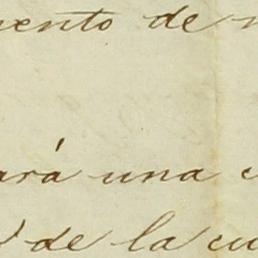 mento de
ará una
de la cu